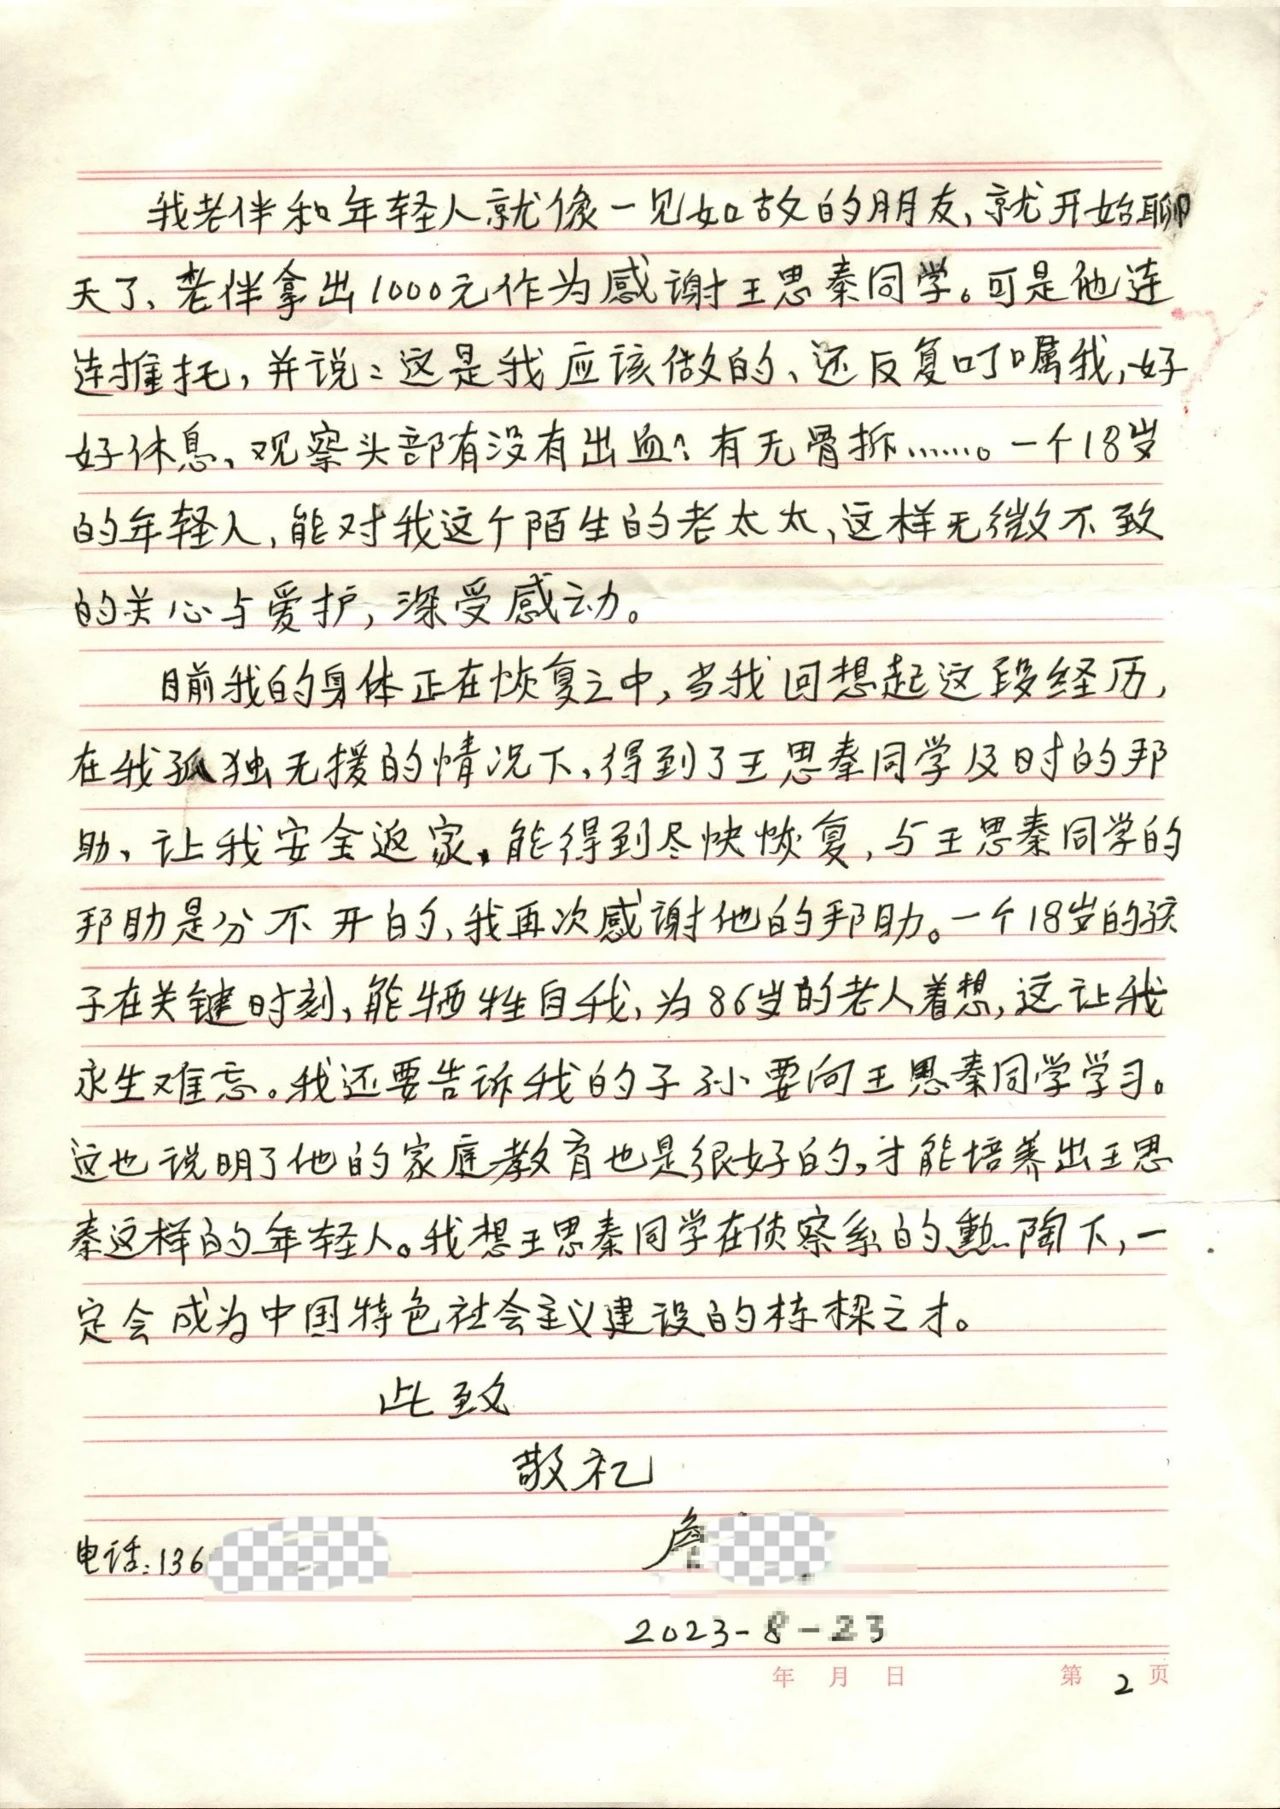 我老伴和年轻人就像一见如故的朋友,就开始聊
天了、老伴拿出1000元作为感谢王思秦同学。可是他连
连推托,并说:这是我应该做的、还反复叮嘱我,好
好休息、观察头部有没有出血?有无骨折……。一个18岁
的年轻人,能对我这个陌生的老太太,这样无微不致
的关心与爱护,深受感动。
目前我的身体正在恢复之中,当我回想起这段经历,
在我孤独无援的情况下,得到了王思秦同学及时的邦
助、让我安全返家,能得到尽快恢复,与王思秦同学的
邦助是分不开的,我再次感谢他的邦助。一个18岁的孩
子在关键时刻,能牺牲自我,为86岁的老人着想,这让我
永生难忘。我还要告诉我的子孙要向王思秦同学学习。
这也说明了他的家庭教育也是很好的,才能培养出王思
秦这样的年轻人。我想王思秦同学在侦察系的熏陶下,一
定会成为中国特色社会主义建设的栋樑之才。
此致
敬礼
电话:136
2023-8-23
年 月 日 第 2 页